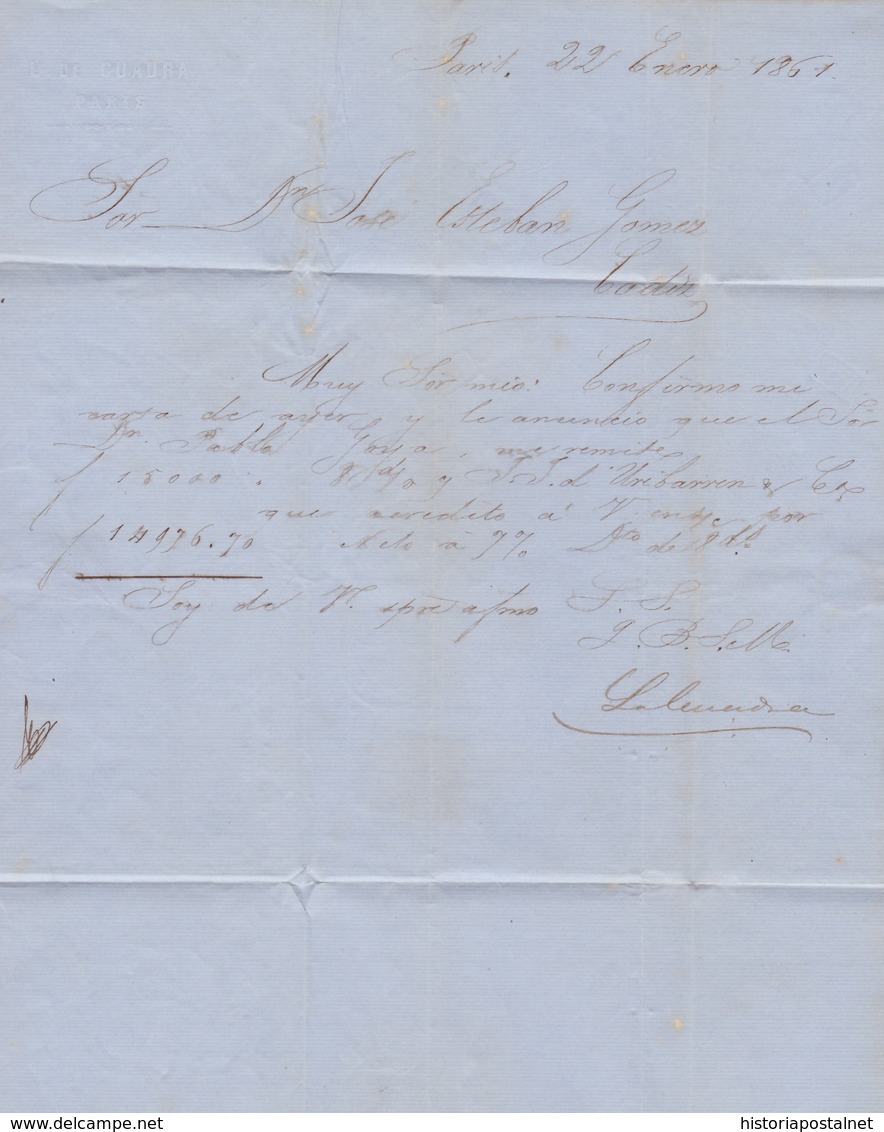 L. DE CUADRA
PARIS
Paris, 22 Enero 1861.
Sor Dn José Esteban Gomez
Cadiz
Muy Sor mio: Confirmo mi
carta de ayer, y le anuncio que el Sor
Dn. Pablo me remite
f 15000, 8 d/ y S. S. d' Uribarren & Ca
que acredito á V. en por
f 14976.70 Neto á 7% Dto de
Soy de V. spre afmo S. S.
Q. B. S. M.
LdeCuadra
delcampe.net
historiapostalnet